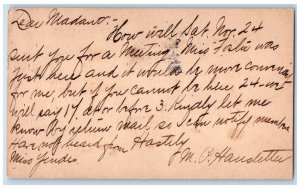 Dear Madam:-
How will Sat. Nov. 24
suit you for a Meeting. Miss was
just here and it would be more
for me, but if you cannot be here 24-
will say 17, at or before 3. Kindly let me
know by return mail, so I can notify
Have not heard from Hastily
Miss M.